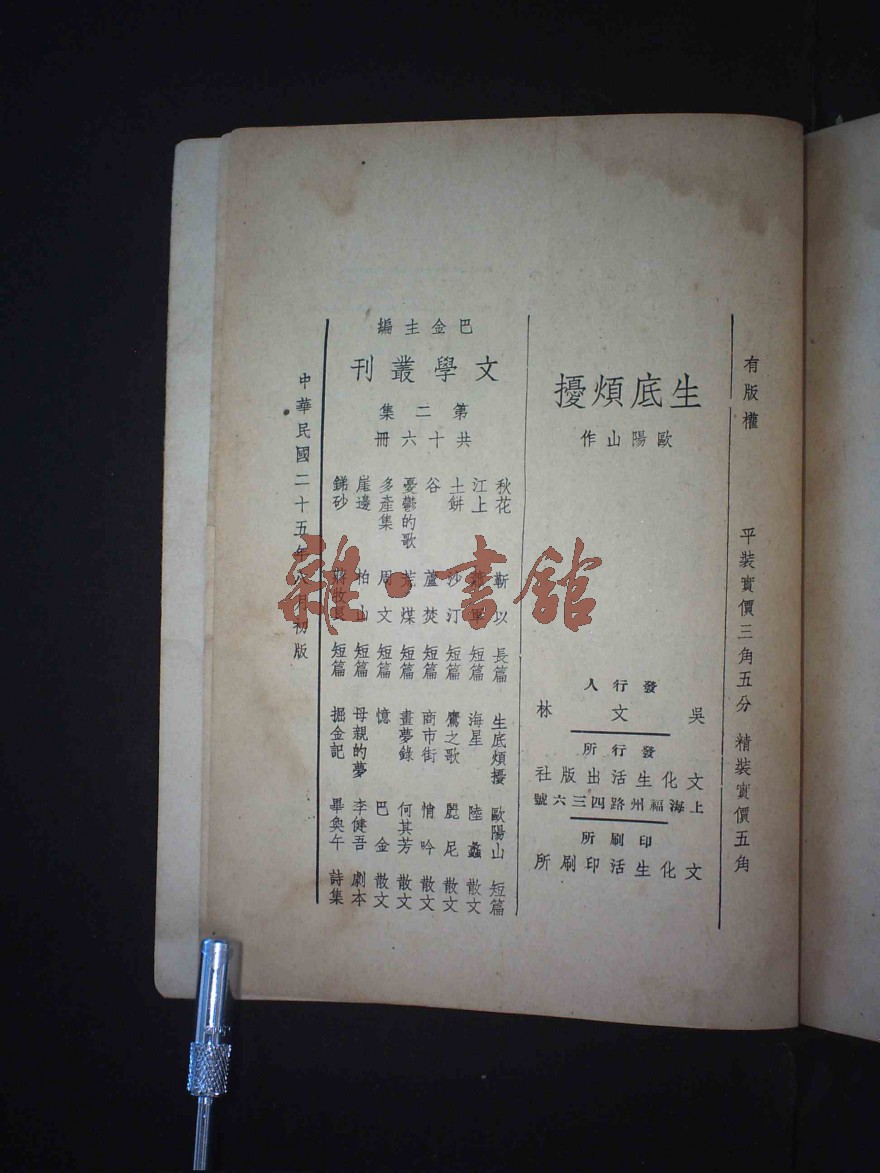 有版權
平裝實價三角五分 精裝實價五角
生底煩擾
歐陽山作
發行人
吳文林
發行所
文化生活出版社
上海福州路四三六號
印刷所
文化生活印刷所
巴金主編
文學叢刊
第二集
共十六冊
秋花 靳以 長篇
江上 短篇
土餅 沙汀 短篇
谷 蘆焚 短篇
憂鬱的歌 荒煤 短篇
多產集 周文 短篇
崖邊 柏山 短篇
銻砂 蔣牧良 短篇
生底煩擾 歐陽山 短篇
海星 陸蠡 散文
鷹之歌 麗尼 散文
商市街 悄吟 散文
畫夢錄 何其芳 散文
憶 巴金 散文
母親的夢 李健吾 劇本
掘金記 畢奐午 詩集
中華民國二十五年八月初版
雜·書館